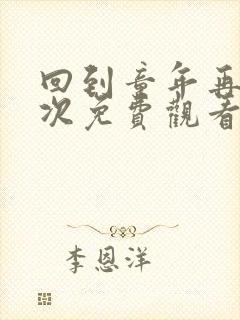 回到童年再
次免費觀看
李恩洋